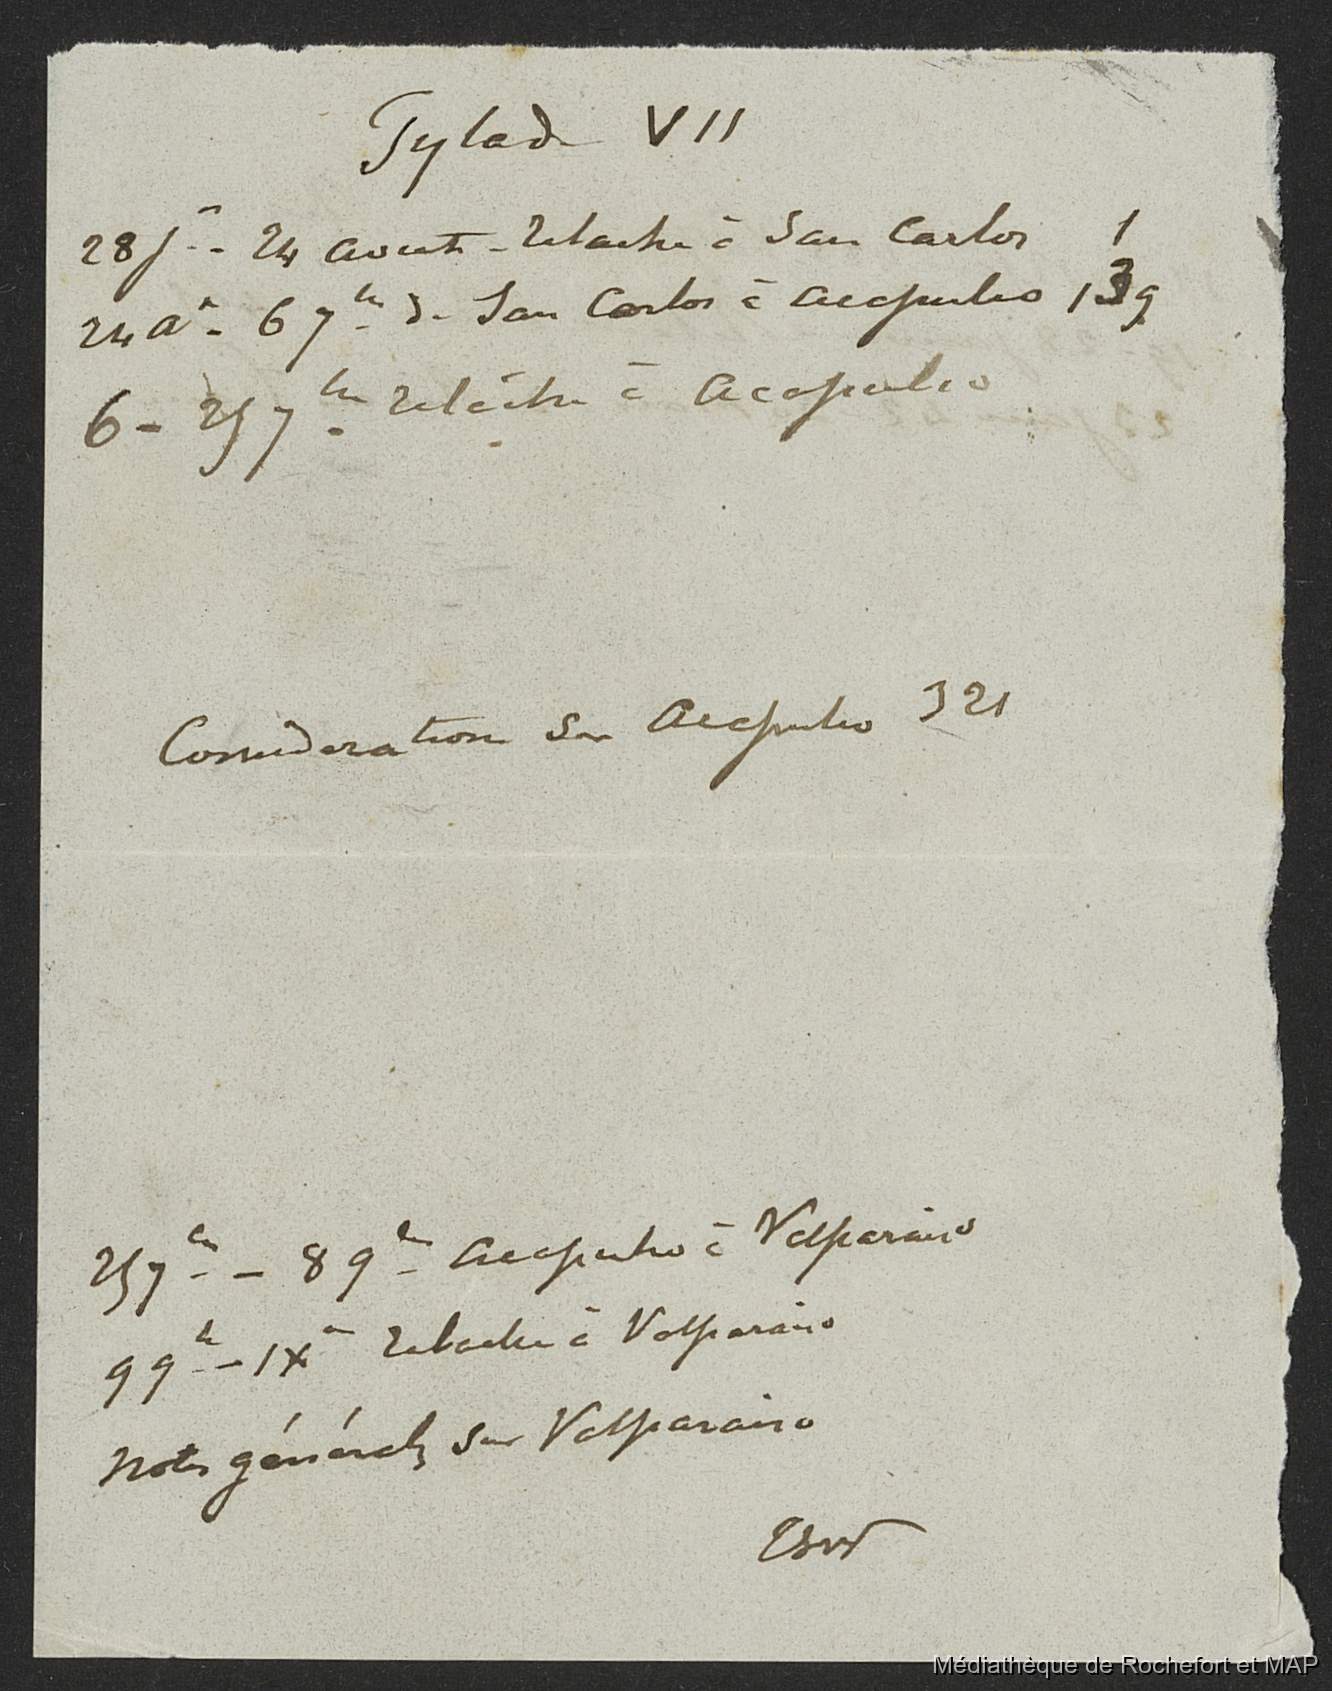 Pylade VII
28 jet - 24 aout - Relache à San Carlos 1
24 at - 6 7bre de San Carlos à Acapulco 139
6 - 25 7bre relâche à Acapulco
Considerations sur Acapulco 321
25 7bre - 8 9bre Acapulco à Valparaiso
9 9bre - 1 Xre relache à Valparaiso
Notes générales sur Valparaiso
Médiathèque de Rochefort et MAP